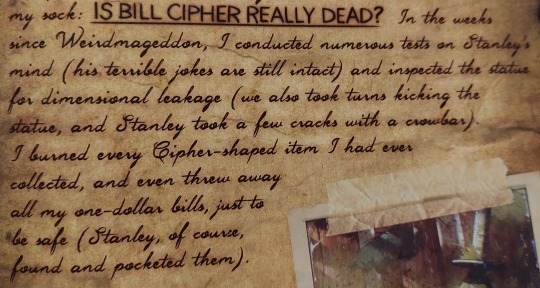 my sock: IS BILL CIPHER REALLY DEAD? In the weeks
since Weirdmageddon, I conducted numerous tests on Stanley's
mind (his terrible jokes are still intact) and inspected the statue
for dimensional leakage (we also took turns kicking the
statue, and Stanley took a few cracks with a crowbar).
I burned every Cipher-shaped item I had ever
collected, and even threw away
all my one-dollar bills, just to
be safe (Stanley, of course,
found and pocketed them).